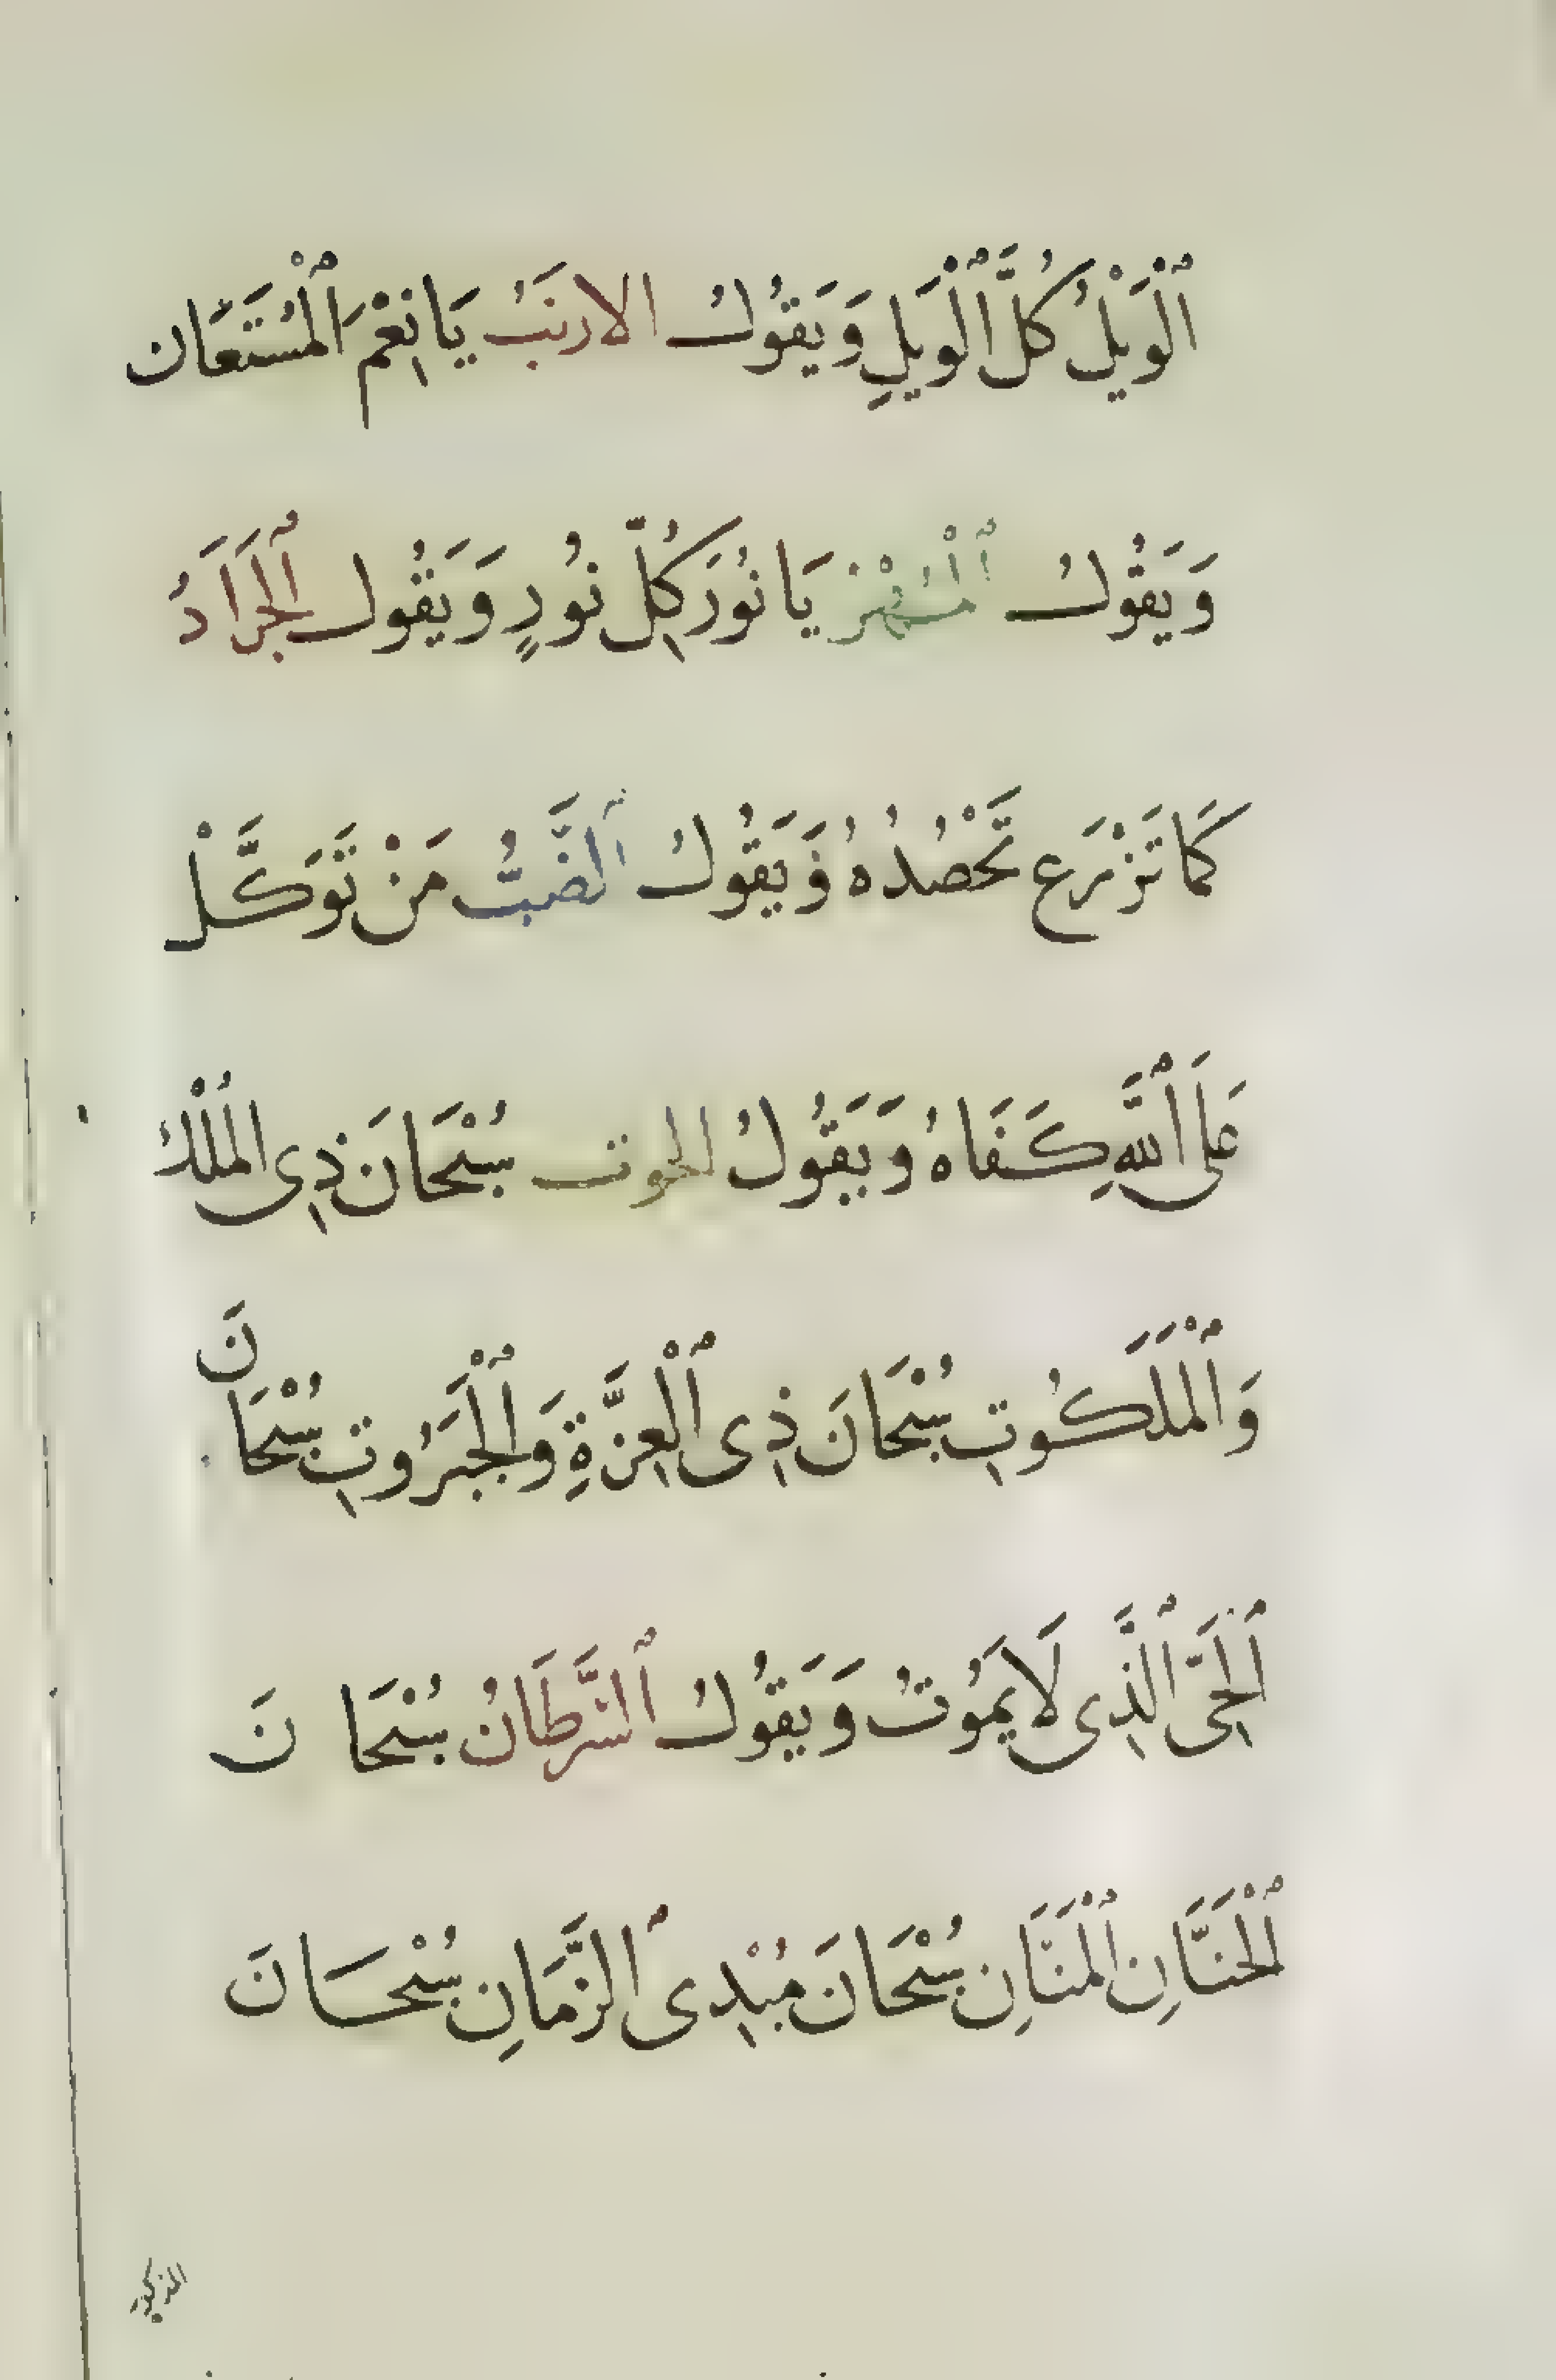 ٱلْوَيْلُ كُلَّ ٱلْوَيلِ وَيَقُولُ الارنَبُ يَا نِعْمَ ٱلْمُسْتَعَان
وَيَقُولُ ٱلْمُهْرُ يَا نُورَ كُلِّ نُورٍ وَيَقُول ٱلجَرَادُ
كَمَا تَزْرَع تَحْصُدُهُ وَيَقُولُ ٱلضَّبُّ مَنْ تَوَكَّلْ
عَلَى ٱللَّهِ كَفَاهُ وَيَقُولُ الحوت سُبْحَانَ ذِى الْمُلْكُ
وَٱلْمَلَكُوتِ سُبْحَانَ ذِى ٱلْعِزَّةِ وَٱلْجَبَرُوتِ سُبْحَانَ
ٱلحَىِّ ٱلَّذِى لَا يَمُوتُ وَيَقُولُ ٱلسَّرَطَانُ سُبْحَانَ
ٱلْحَنَّانِ ٱلْمَنَّانِ سُبْحَانَ مُبْدِى ٱلزَّمَانِ سُبْحَانَ